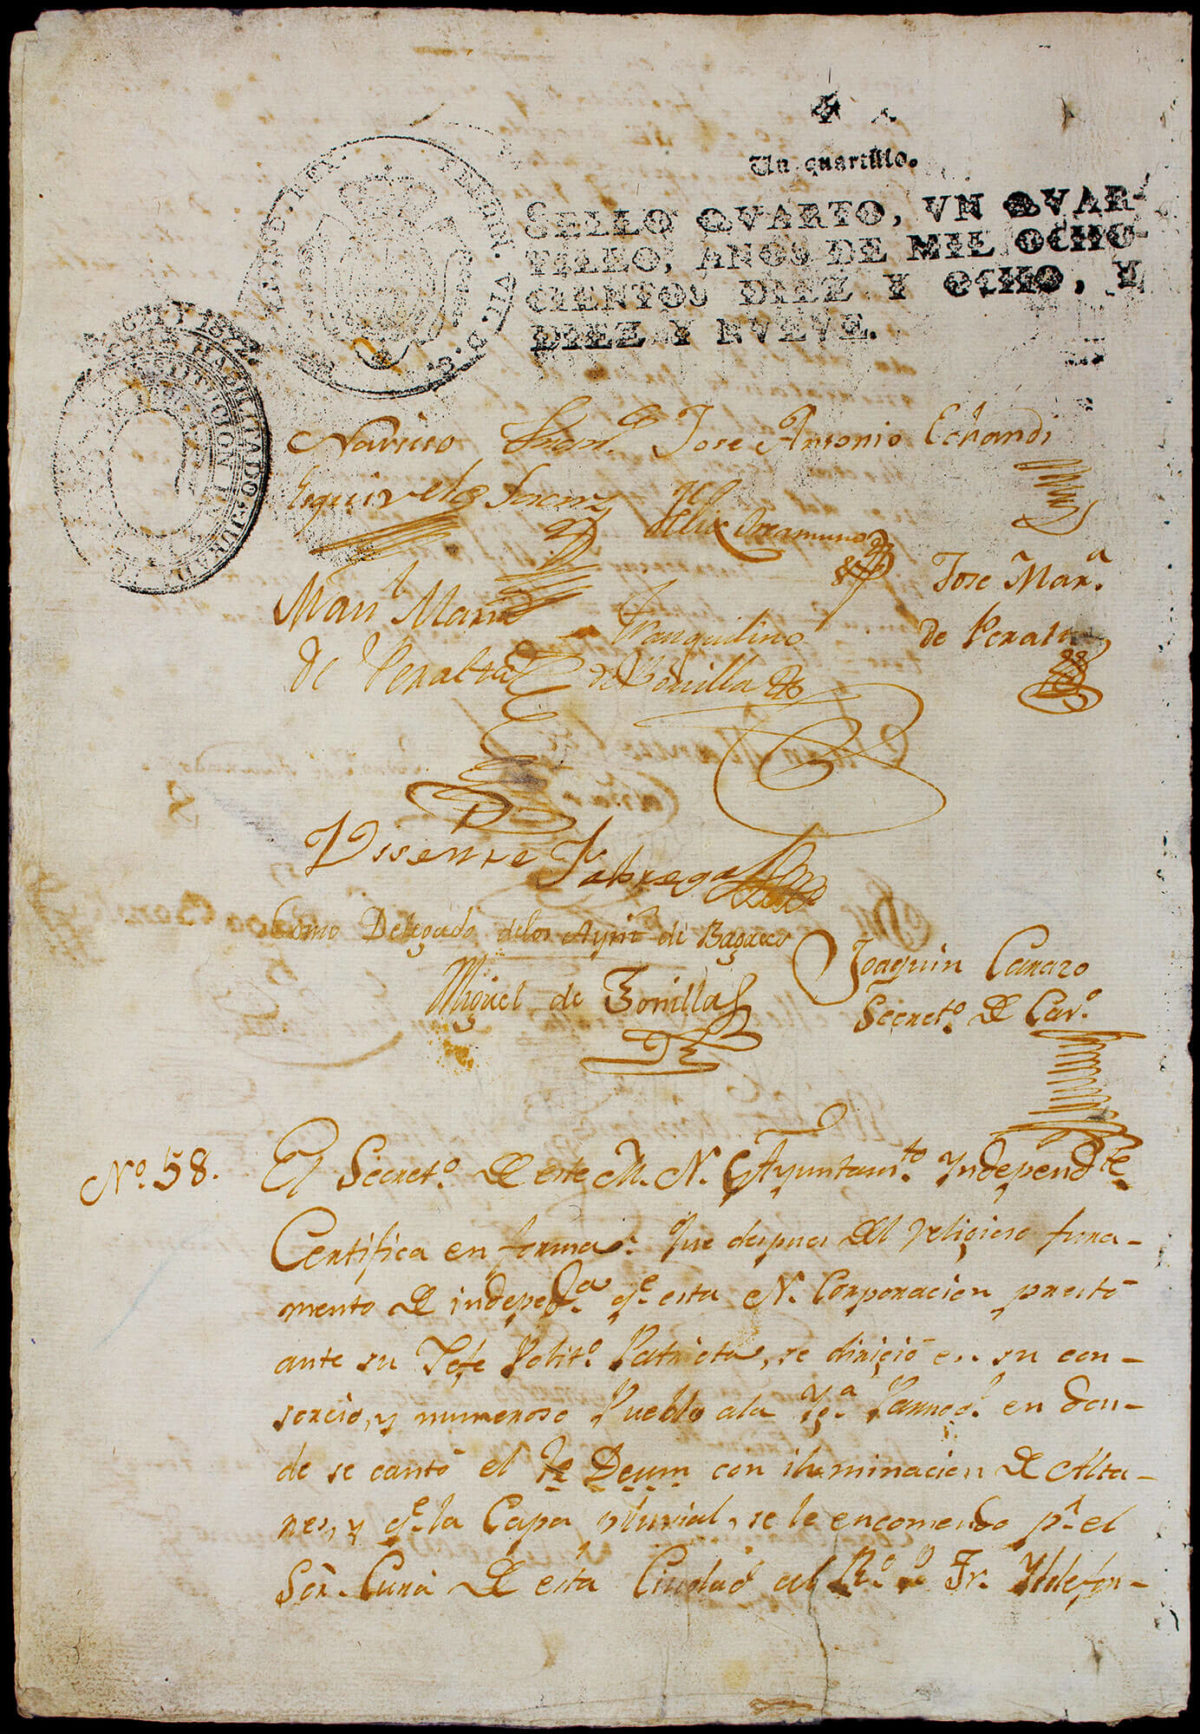 Un quartillo.
SELLO QVARTO, VN QVAR-
TILLO, AÑOS DE MIL OCHO-
CIENTOS DIEZ Y OCHO, Y
DIEZ Y NVEVE.
FERDIN. VII. D. G.
REX.
HABILITADO JURAD
CONSTITUCION
Jose Antonio Echandi
Felix Oreamuno
Man.l Maria
de Peralta
Tranquilino
de Bonilla
Jose Mar.a
de Peralta
Visente Fabrega
Como Delegado delos Aynt.s de Bagaces
Miguel de Bonilla
Joaquin Carazo
Secret.o de Car.o
No. 58.
El Secret.o de este M. N. Ayuntam.to Yndepend.te
Certifica en forma: Que despues del religioso jura-
mento de indepe.a q.e esta N. Corporacion prestó
ante su Jefe Polit.o Patriota, se dirigió en su con-
sorcio, y numeroso Pueblo ala Yg.a Parroq.l en don-
de se cantó el Te Deum con iluminacion de Alta-
res, y q.e la Capa pluvial, se le encomendó p.r el
Sór. Cura de esta Ciudad al R.o P. Fr. Yldefon-